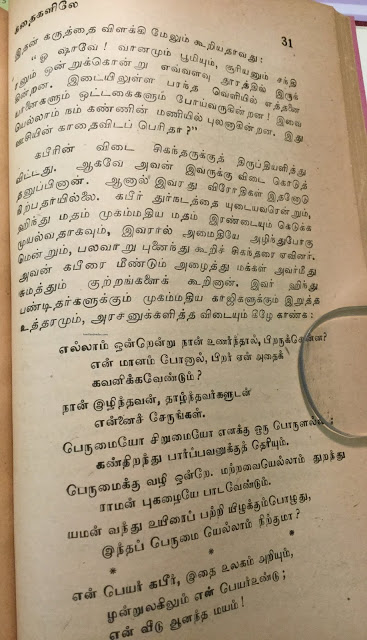 கதைகளிலே
31
இதன் கருத்தை விளக்கி மேலும் கூறியதாவது:
“ஓ ஷாவே! வானமும் பூமியும், சூரியனும் சந்தி
ரனும் ஒன்றுக்கொன்று எவ்வளவு தூரத்தில் இருக்
கின்றன. இடையிலுள்ள பரந்த வெளியில் எத்தனை
யானைகளும் ஒட்டகைகளும் போய்வருகின்றன! இவை
யெல்லாம் நம் கண்ணின் மணியில் புலனாகின்றன. இது
ஊசியின் காதைவிடப் பெரிதா?”
கபீரின் விடை சிகந்தருக்குத் திருப்தியளித்து
விட்டது. ஆகவே அவன் இவருக்கு விடை கொடுத்
தனுப்பினான். ஆனால் இவரது விரோதிகள் இதனோடு
நிற்பதாயில்லை. கபீர் துர்நடத்தை யுடையவரென்றும்,
ஹிந்து மதம் முகம்மதிய மதம் இரண்டையும் கெடுக்க
முயல்வதாகவும், இவரால் அமைதியே அழிந்துபோகு
மென்றும், பலவாறு புனைந்து கூறிச் சிகந்தரை ஏவினர்.
அவன் கபீரை மீண்டும் அழைத்து மக்கள் அவர்மீது
சுமத்தும் குற்றங்களைக் கூறினான். இவர் ஹிந்து
பண்டிதர்களுக்கும் முகம்மதிய காஜிகளுக்கும் இறுத்த
உத்தரமும், அரசனுக்களித்த விடையும் கீழே காண்க:
எல்லாம் ஒன்றென்று நான் உணர்ந்தால், பிறருக்கென்ன?
என் மானம் போனால், பிறர் ஏன் அதைக்
கவனிக்கவேண்டும்?
நான் இழிந்தவன், தாழ்ந்தவர்களுடன்
என்னைச் சேருங்கள்.
பெருமையோ சிறுமையோ எனக்கு ஒரு பொருளல்ல;
கண்திறந்து பார்ப்பவனுக்குத் தெரியும்.
பெருமைக்கு வழி ஒன்றே. மற்றவையெல்லாம் துறந்து
ராமன் புகழையே பாடவேண்டும்.
யமன் வந்து உயிரைப் பற்றி யிழுக்கும்பொழுது,
இந்தப் பெருமை யெல்லாம் நிற்குமா?
* * *
என் பெயர் கபீர், இதை உலகம் அறியும்,
மூன்றுலகிலும் என் பெயர்உண்டு;
என் வீடு ஆனந்த மயம்!